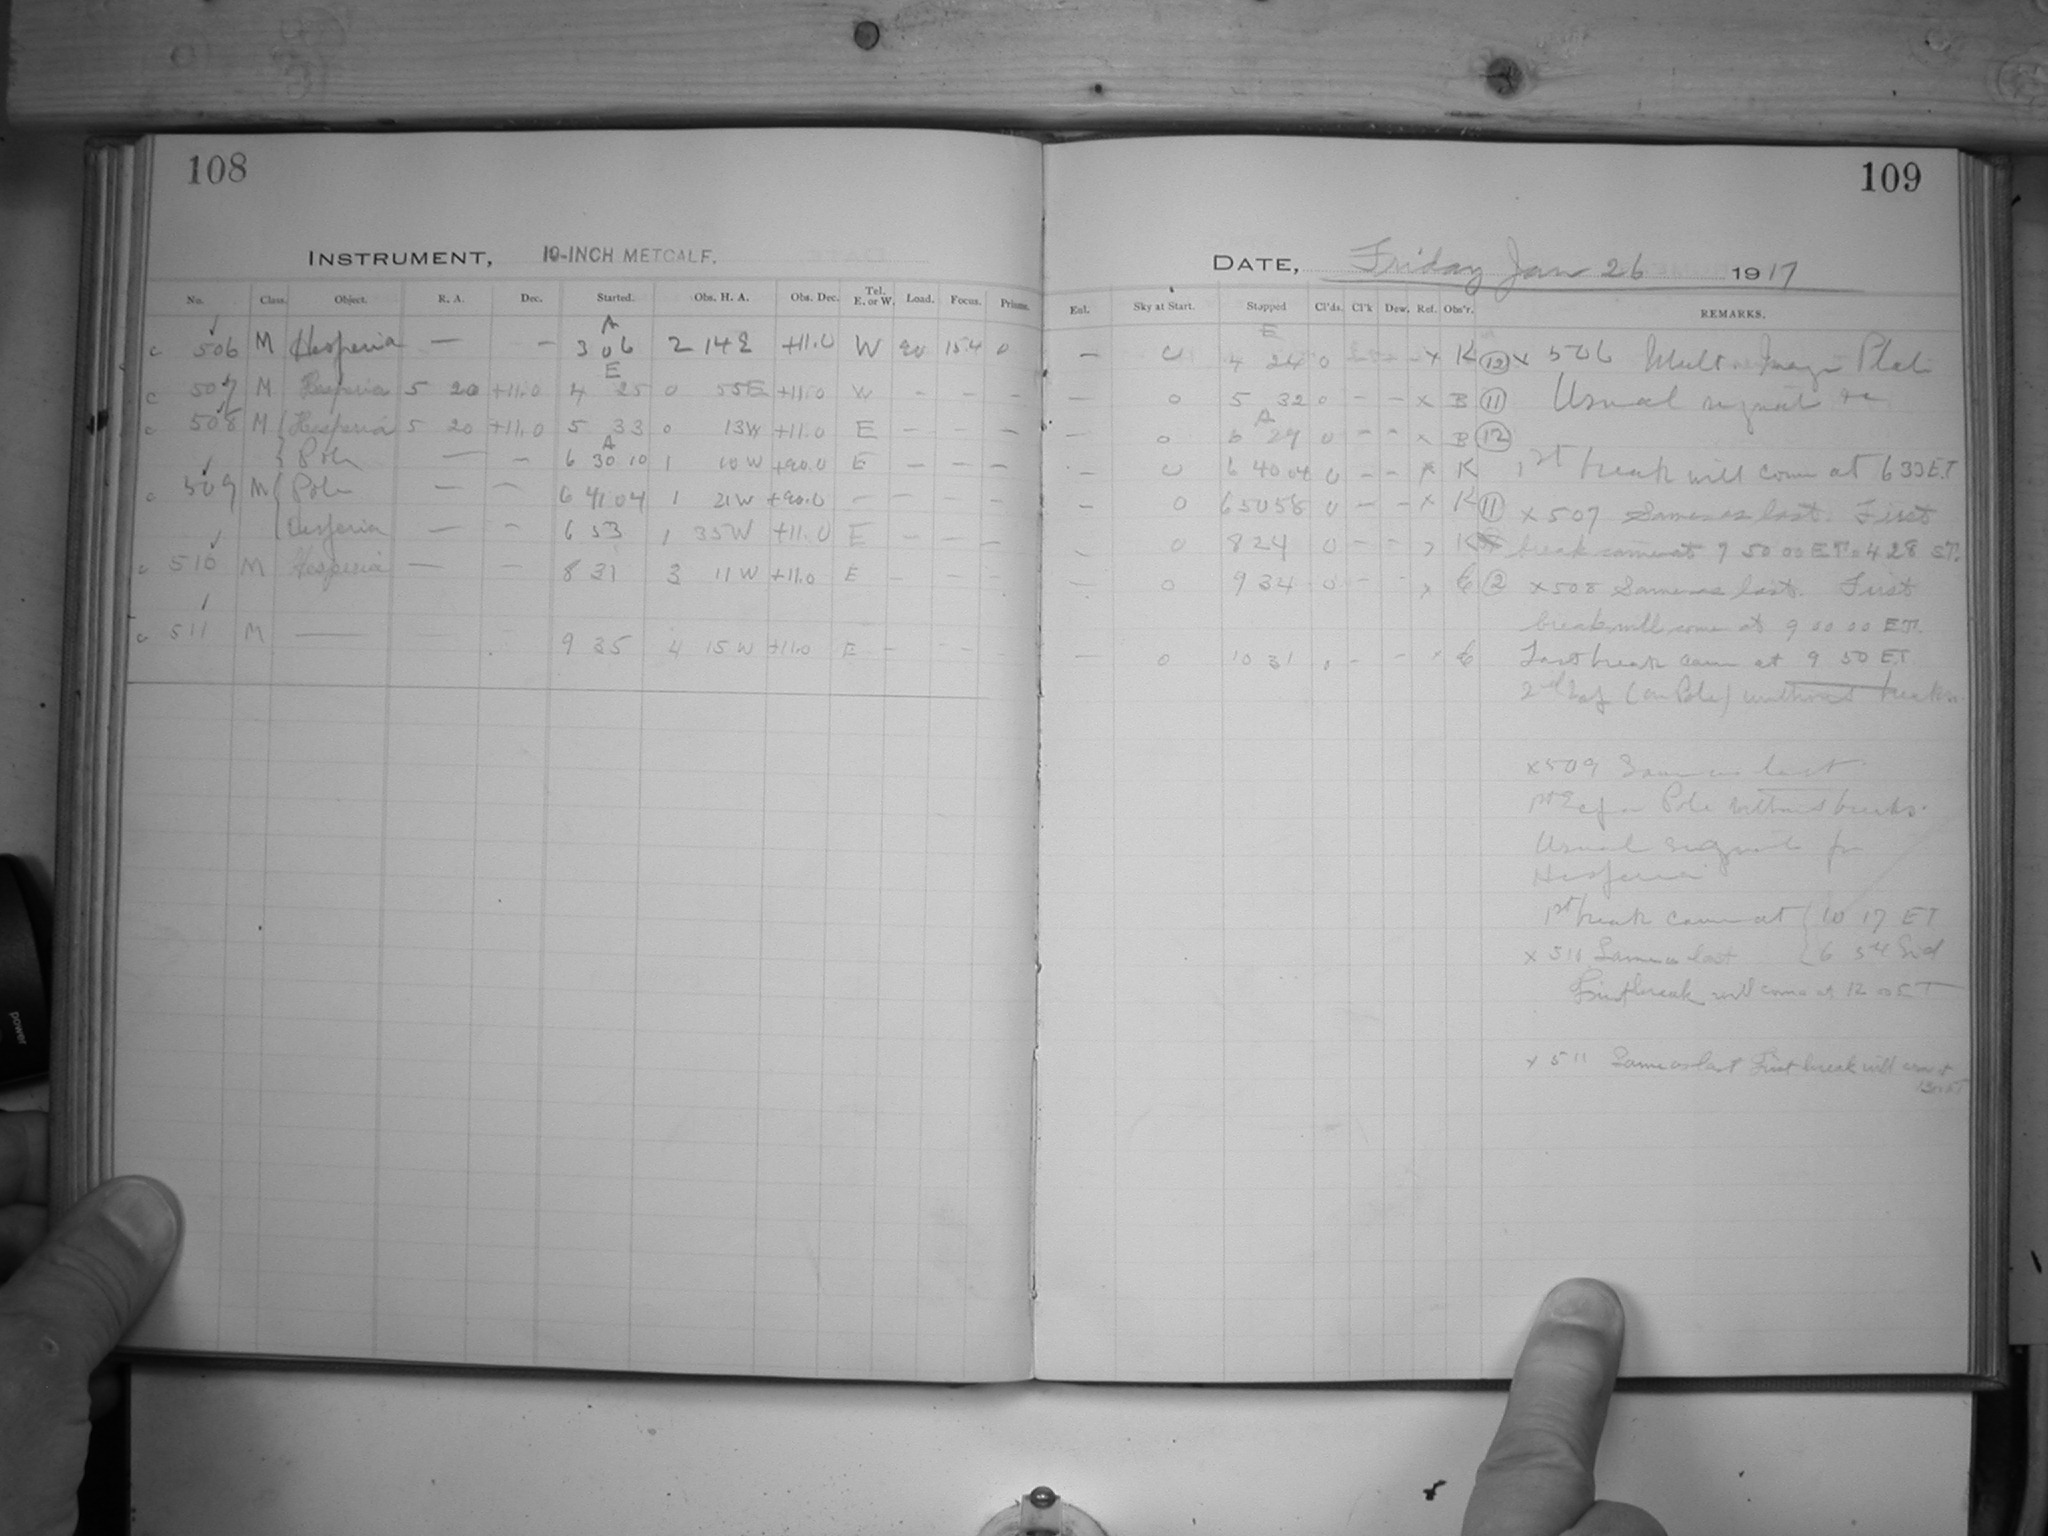 108
109
INSTRUMENT, 10-INCH METCALF.
DATE, Friday Jan 26 1917
No. Class. Object. R. A. Dec. Started. Obs. H. A. Obs. Dec. Tel. E. or W. Load. Focus. Prisms.
Enl. Sky at Start. Stopped Cl'ds. Cl'k Dew. Ref. Obs'r. REMARKS.
c 506 M Hesperia — — A 3 06 2 14 E +11.0 W 90 15.4 0
— 0 E 4 24 0 – x K 12 x 506 Plate
c 507 M Hesperia 5 20 +11.0 E 4 25 0 55E +11.0 W – – –
— 0 5 32 0 – – x B 11 Usual
c 508 M Hesperia 5 20 +11.0 5 33 0 13W +11.0 E – – –
— 0 A 6 29 0 – – x B 12
Pole — – A 6 30 10 1 10 W +90.0 E – – –
– 0 6 40 04 0 – – x K 1st break will come at 6 33 E.T
c 509 M Pole — — 6 41 04 1 21 W +90.0 — — – –
– 0 6 50 58 0 — – x K 11 x 507 Same as last. First
Hesperia — – 6 53 1 35 W +11.0 E – – –
– 0 8 24 0 – – K break came at 9 50 00 E.T. 4 28 ST.
c 510 M Hesperia — – 8 31 3 11 W +11.0 E – – –
— 0 9 34 0 – – x 2 x 508 Same as last. First
break will come at 9 00 00 E.T.
c 511 M —— 9 35 4 15 W +11.0 E – – – –
— 0 10 31 – – x Last break came at 9 50 E.T.
2nd (on Pole) without breaks.
x 509 Same as last
Pole without breaks.
Usual for
Hesperia
1st break came at 10 17 ET
x 511 Same as last 6 54 Sid
First break will come at 12 00 E T
x 511 Same as last First break will come at